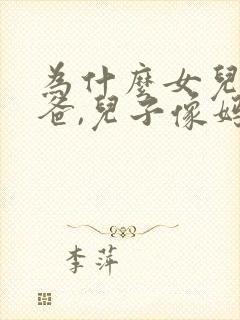 為什麼女兒
爸,兒子像媽
李萍